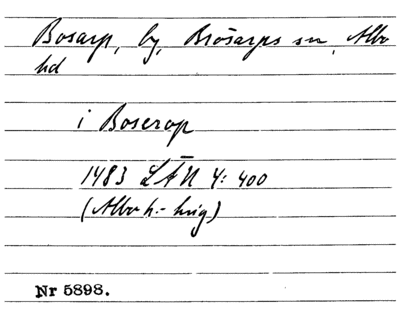 Bosarp, by, Brösarps sn, Albo
hd
i Boserop
1483 LÄN 4: 400
(Albo h:- krig)
Nr 5898.